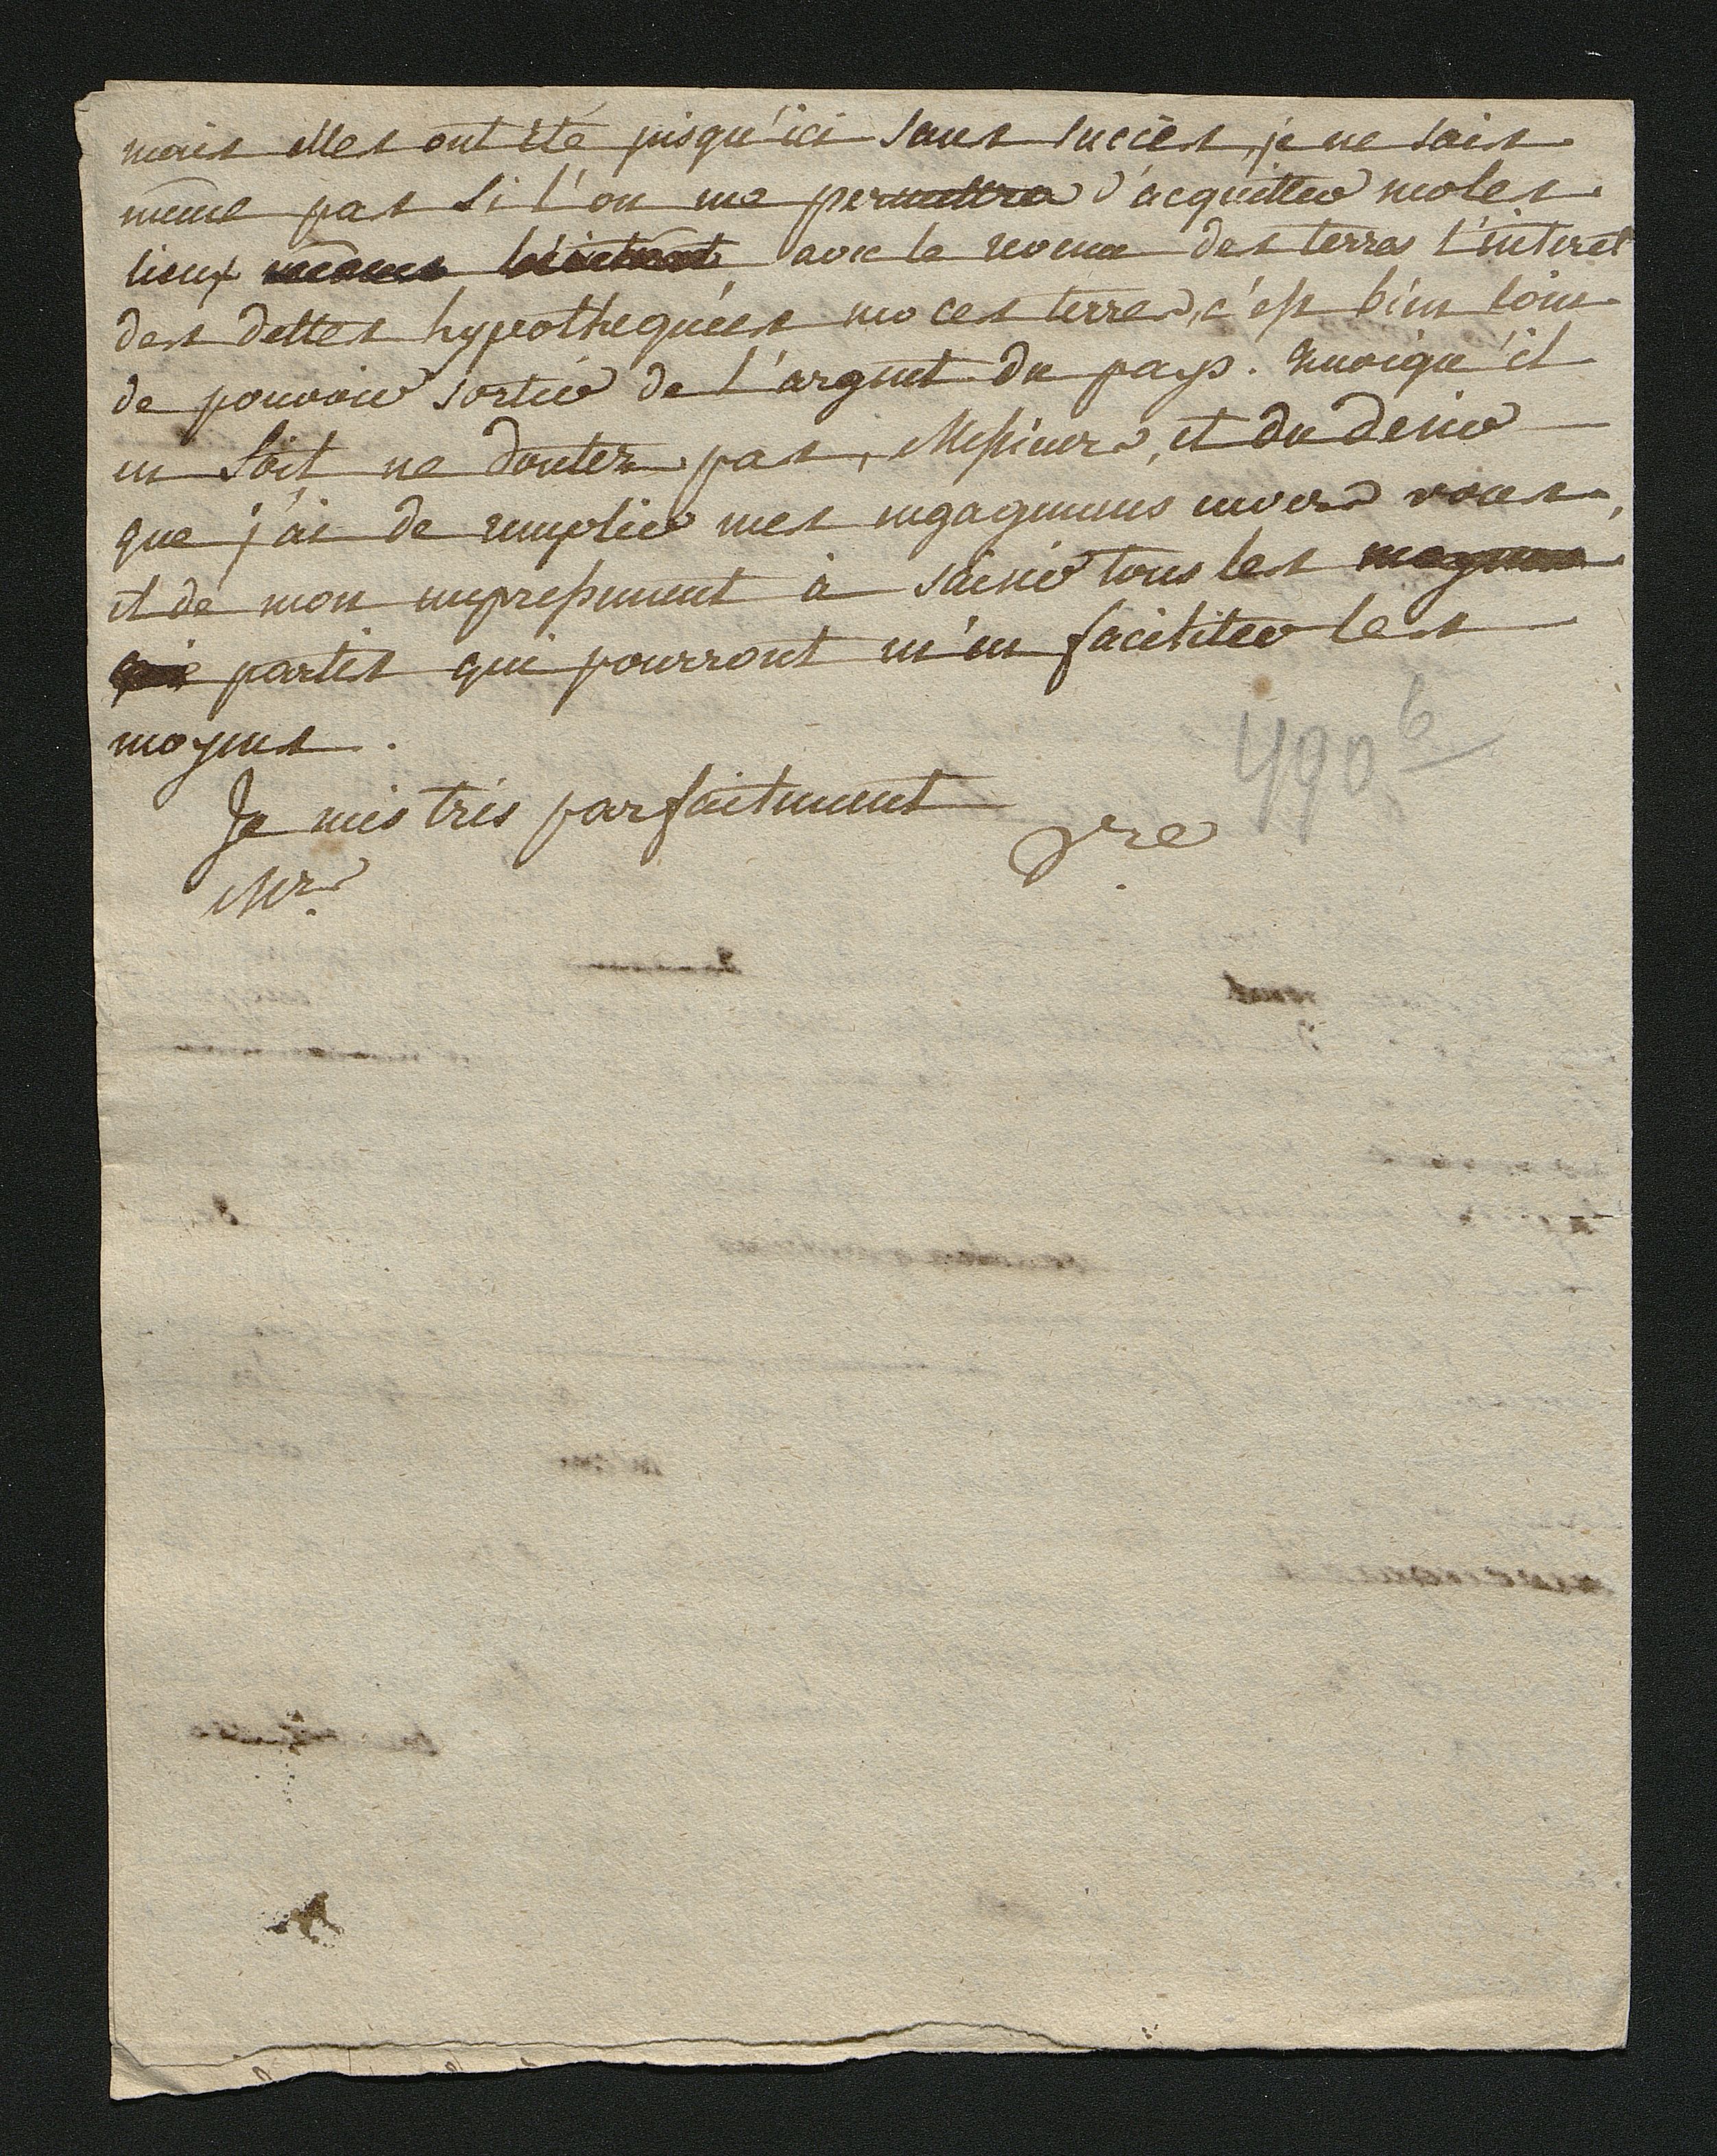 mais elles ont été jusqu'ici sans succès, je ne sais
même pas si l'on me permettra d'acquitter sur les
lieux mêmes l'intéret avec le revenu des terres l'interêt
des dettes hypothequées sur ces terres, c'est bien loin
de pouvoir sortir de l'argent du pays. Quoiqu'il
en soit ne doutez pas, Messieurs, et du desir
que j'ai de remplir mes engagemens envers vous,
et de mon empressement à saisir tous les moyens
qui partis qui pourront m'en faciliter les
moyens.
Je suis très parfaitement
Mrs.
Vre
490 b